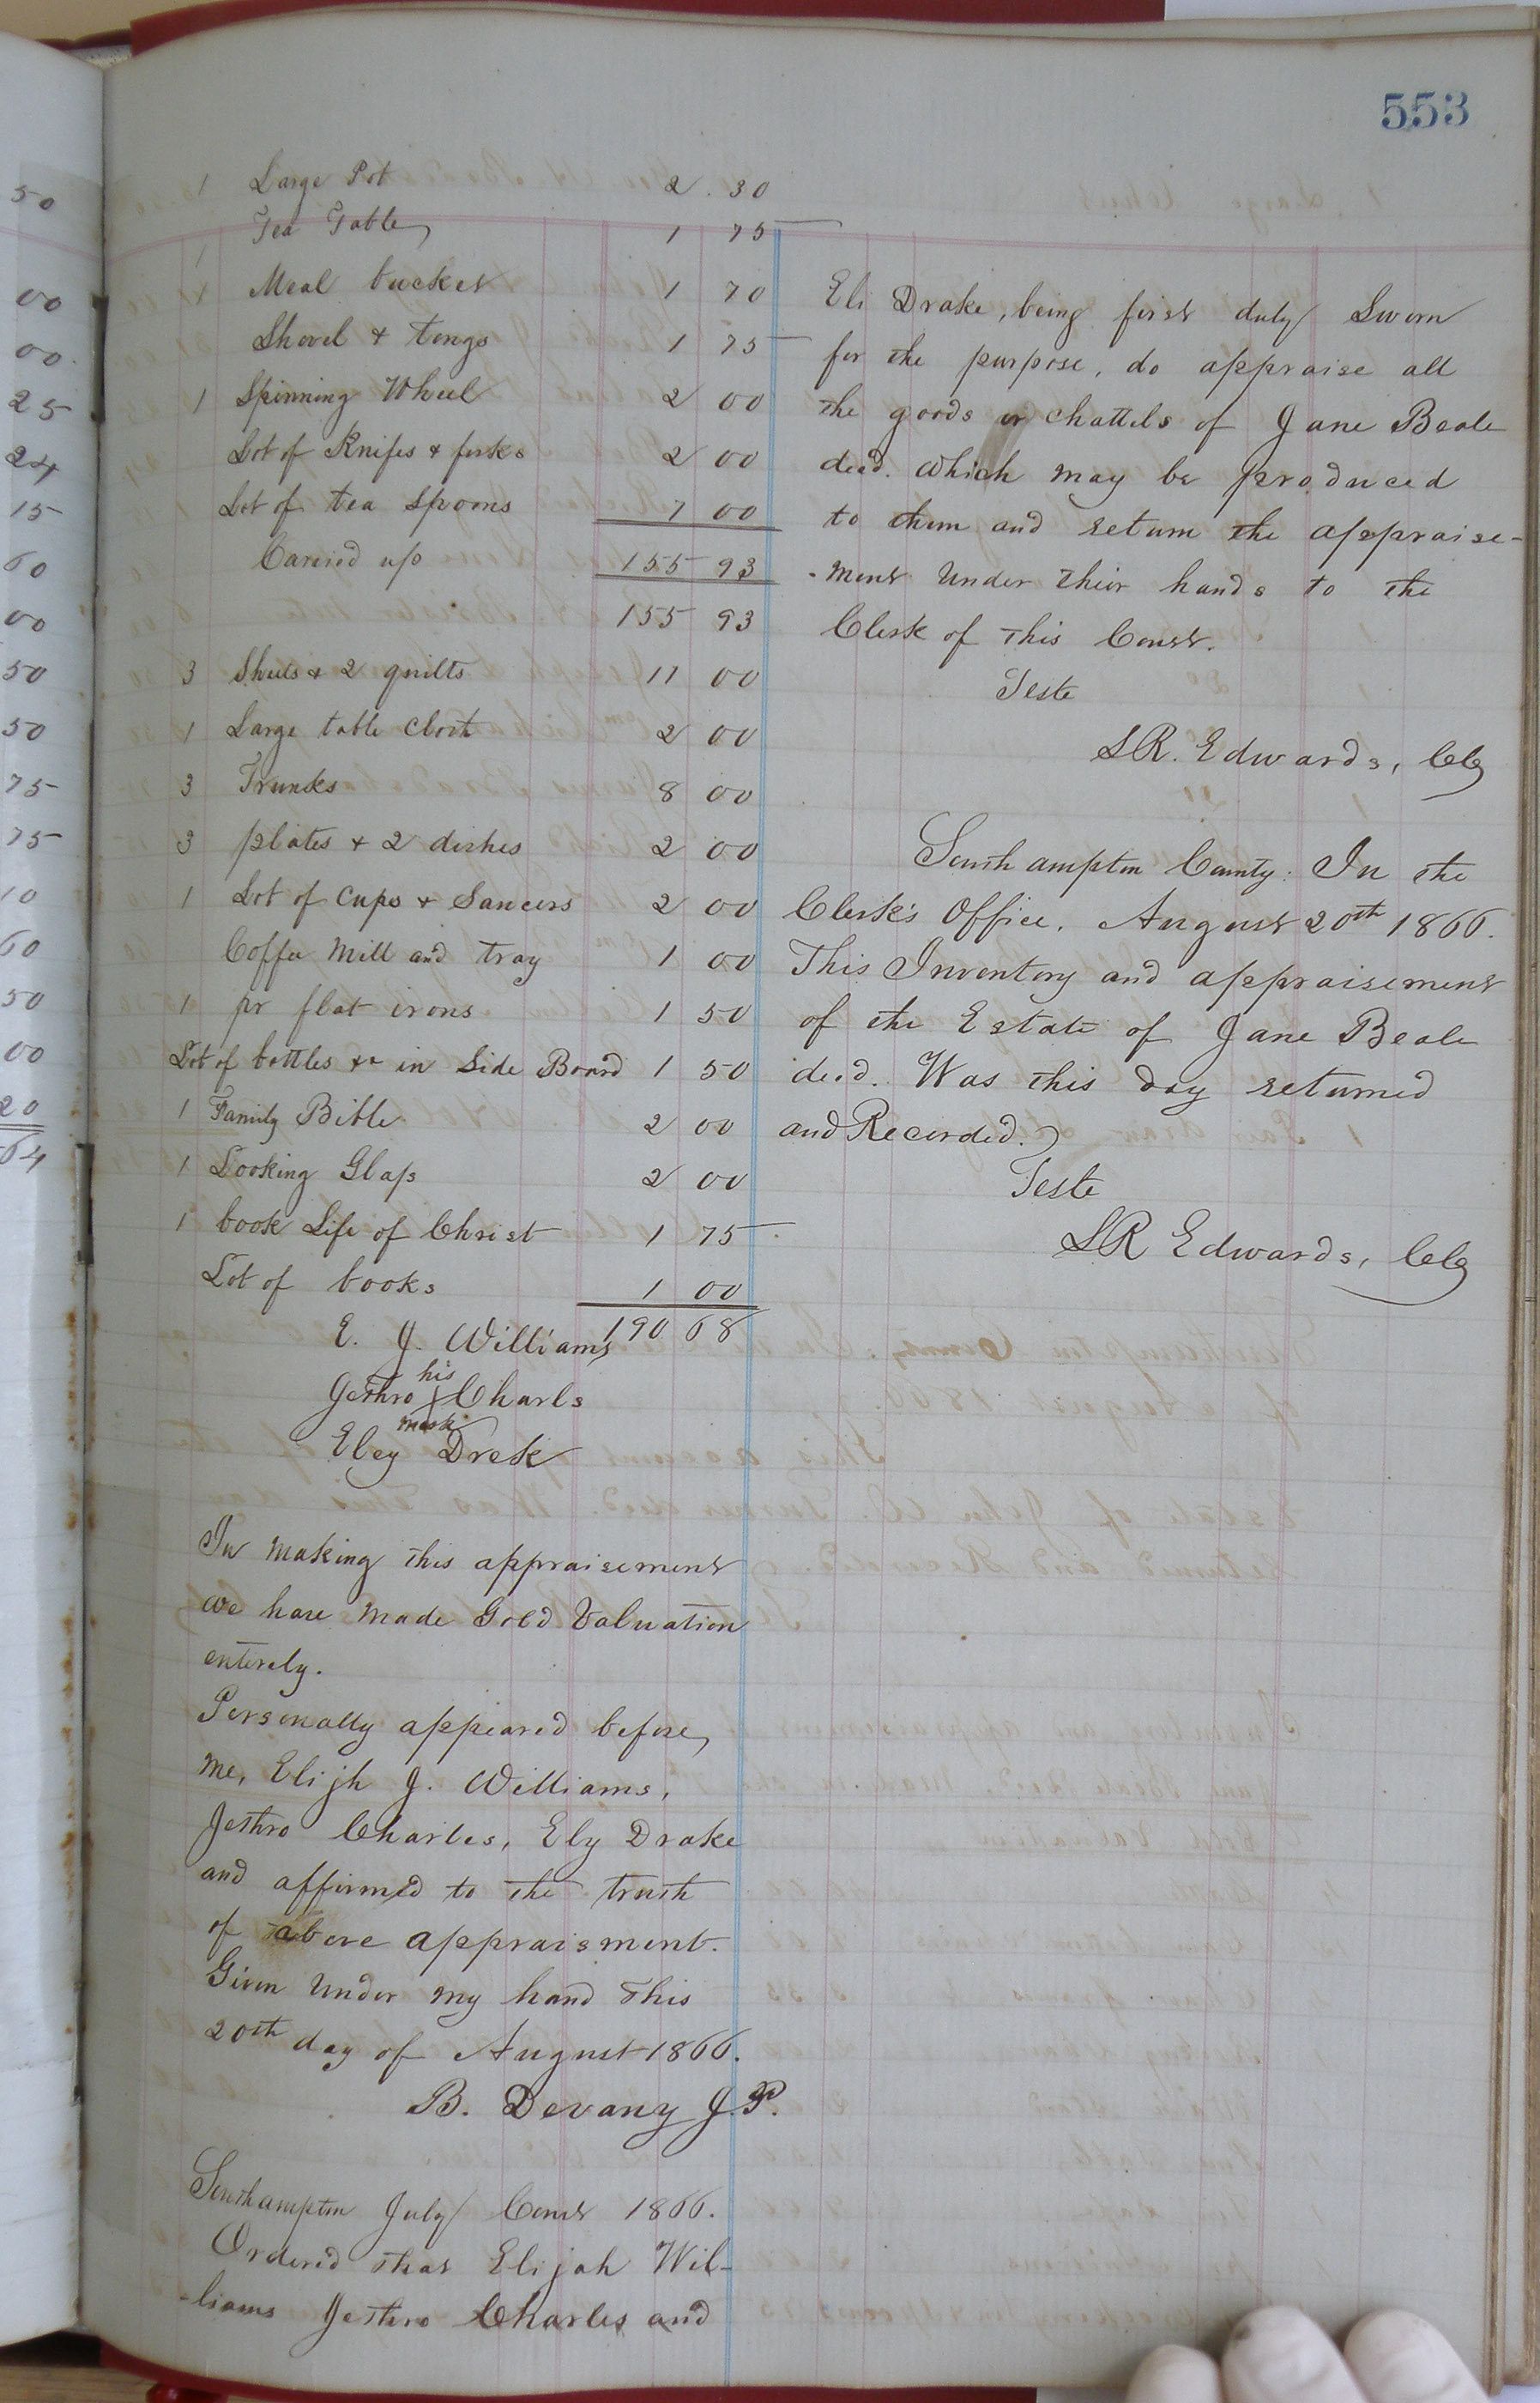 553
50
00
00
25
24
15
60
00
50
50
75
75
10
60
50
00
20
64
1 Large Pot 2.30
1 Tea Table 1 75
Meal bucket 1 70
Shovel & tongs 1 75
1 Spinning Wheel 2 00
Lot of Knifes & forks 2 00
Lot of tea Spoons 7 00
Carried up 155 93
155 93
3 Sheets & 2 quilts 11 00
1 Large table Cloth 2 00
3 Trunks 8 00
3 plates & 2 dishes 2 00
1 Lot of Cups & Saucers 2 00
Coffee Mill and tray 1 00
1 pr flat irons 1 50
Lot of bottles &c in Side Board 1 50
1 Family Bible 2 00
1 Looking Glass 2 00
1 book Life of Christ 1 75
Lot of books 1 00
E. J. Williams 190 68
his
Jethro X Charls
mark
Eley Drek
In making this appraisement
we have made Gold Valuation
entirely.
Personally appeared before
me, Elijh J. Williams,
Jethro Charles, Ely Drake
and affirmed to the truth
of above appraisment.
Given Under my hand this
20th day of August 1866.
B. Devany J.P.
Southampton July Court 1866.
Ordered that Elijah Wil-
-liams Jethro Charles and
Eli Drake, being first duly Sworn
for the purpose, do appraise all
the goods or chattels of Jane Beale
decd. which may be produced
to them and return the appraise-
-ment Under their hands to the
Clerk of this Court.
Teste
LR. Edwards, Clk
Southampton County: In the
Clerk's Office, August 20th 1866.
This Inventory and appraisement
of the Estate of Jane Beale
decd. Was this day returned
and Recorded.
Teste
LR Edwards, Clk